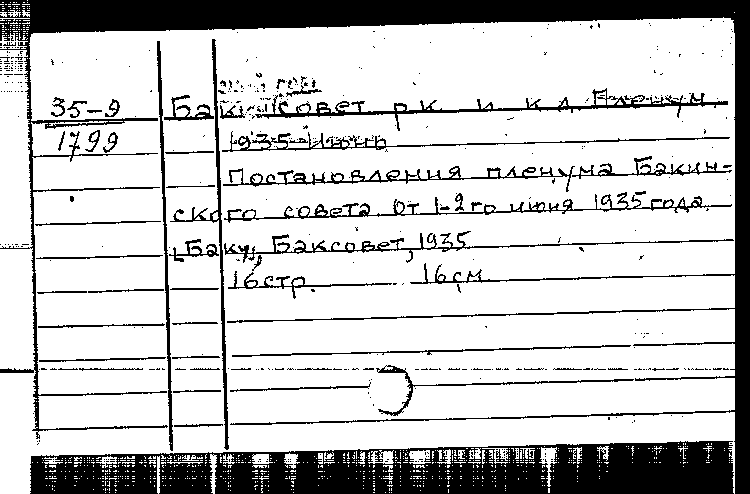 35-9
1799
Баккинский совет р.к. и к.д. Пленум.
1935 Июнь
Постановления пленума Бакин-
ского совета. От 1-2го июня 1935 года.
[Баку], Баксовет, 1935
16 стр. 16 см